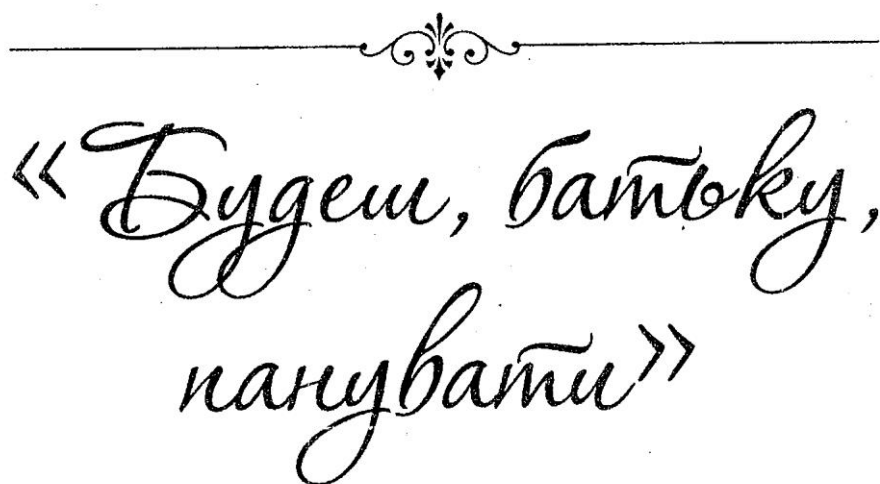 «Будеш, батьку,
панувати»